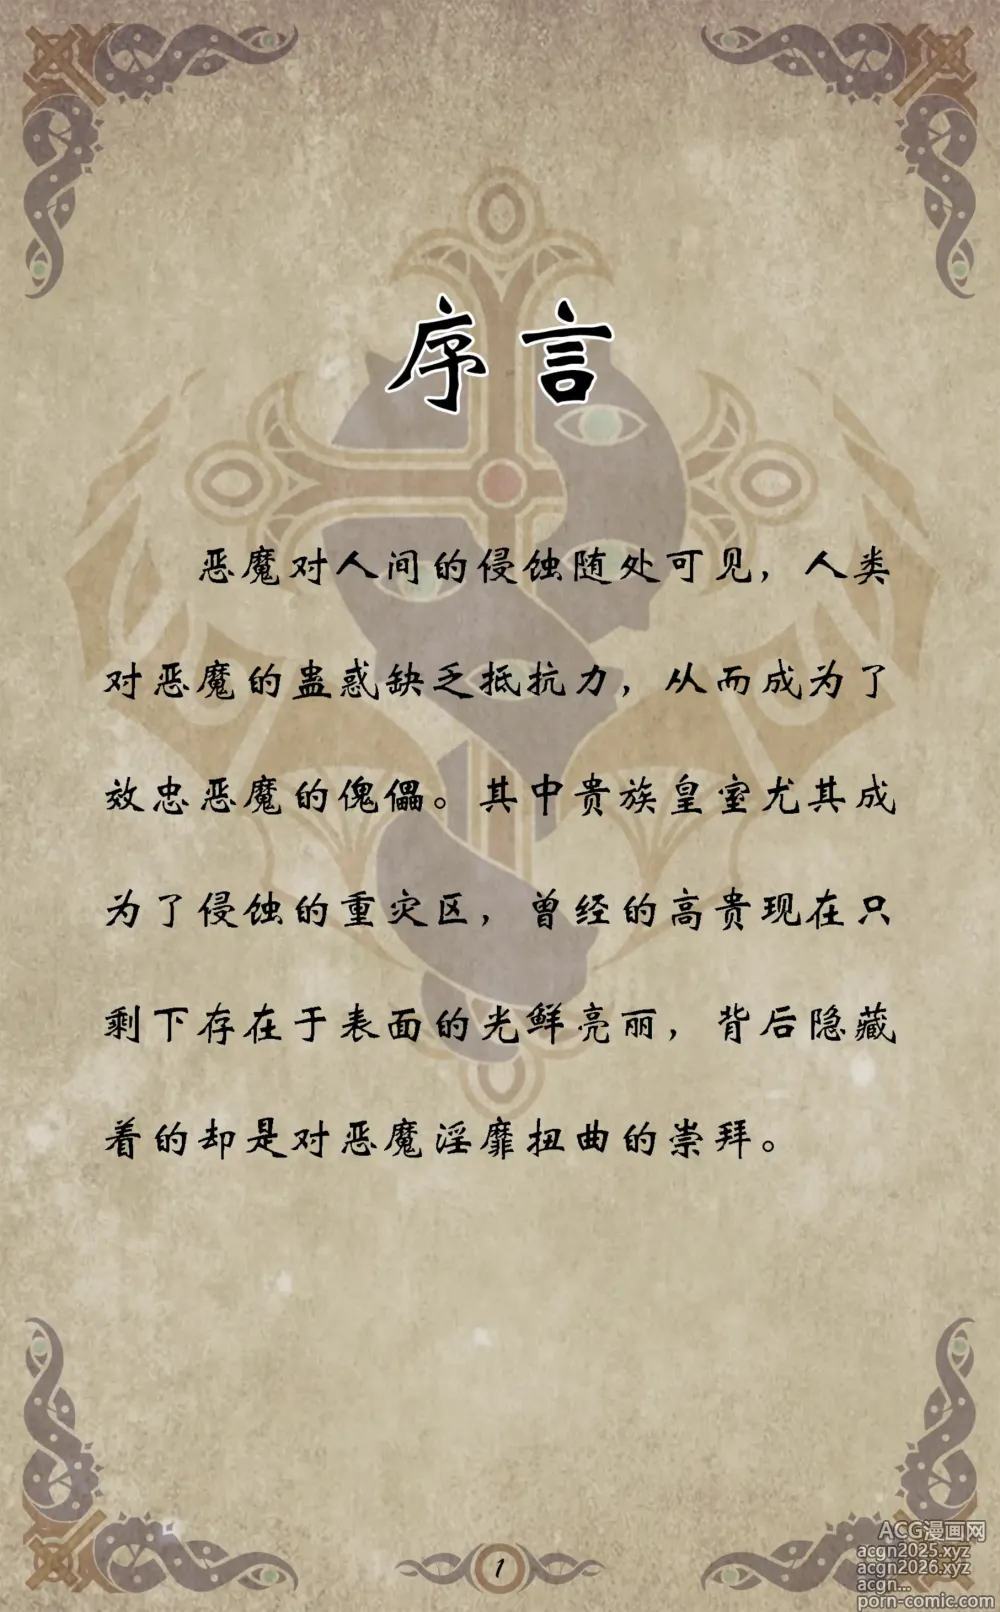 序言
恶魔对人间的侵蚀随处可见，人类
对恶魔的蛊惑缺乏抵抗力，从而成为了
效忠恶魔的傀儡。其中贵族皇室尤其成
为了侵蚀的重灾区，曾经的高贵现在只
剩下存在于表面的光鲜亮丽，背后隐藏
着的却是对恶魔淫靡扭曲的崇拜。
1
ACG漫画网
acgn2025.xyz
acgn2026.xyz
acgn...
porn-comic.com